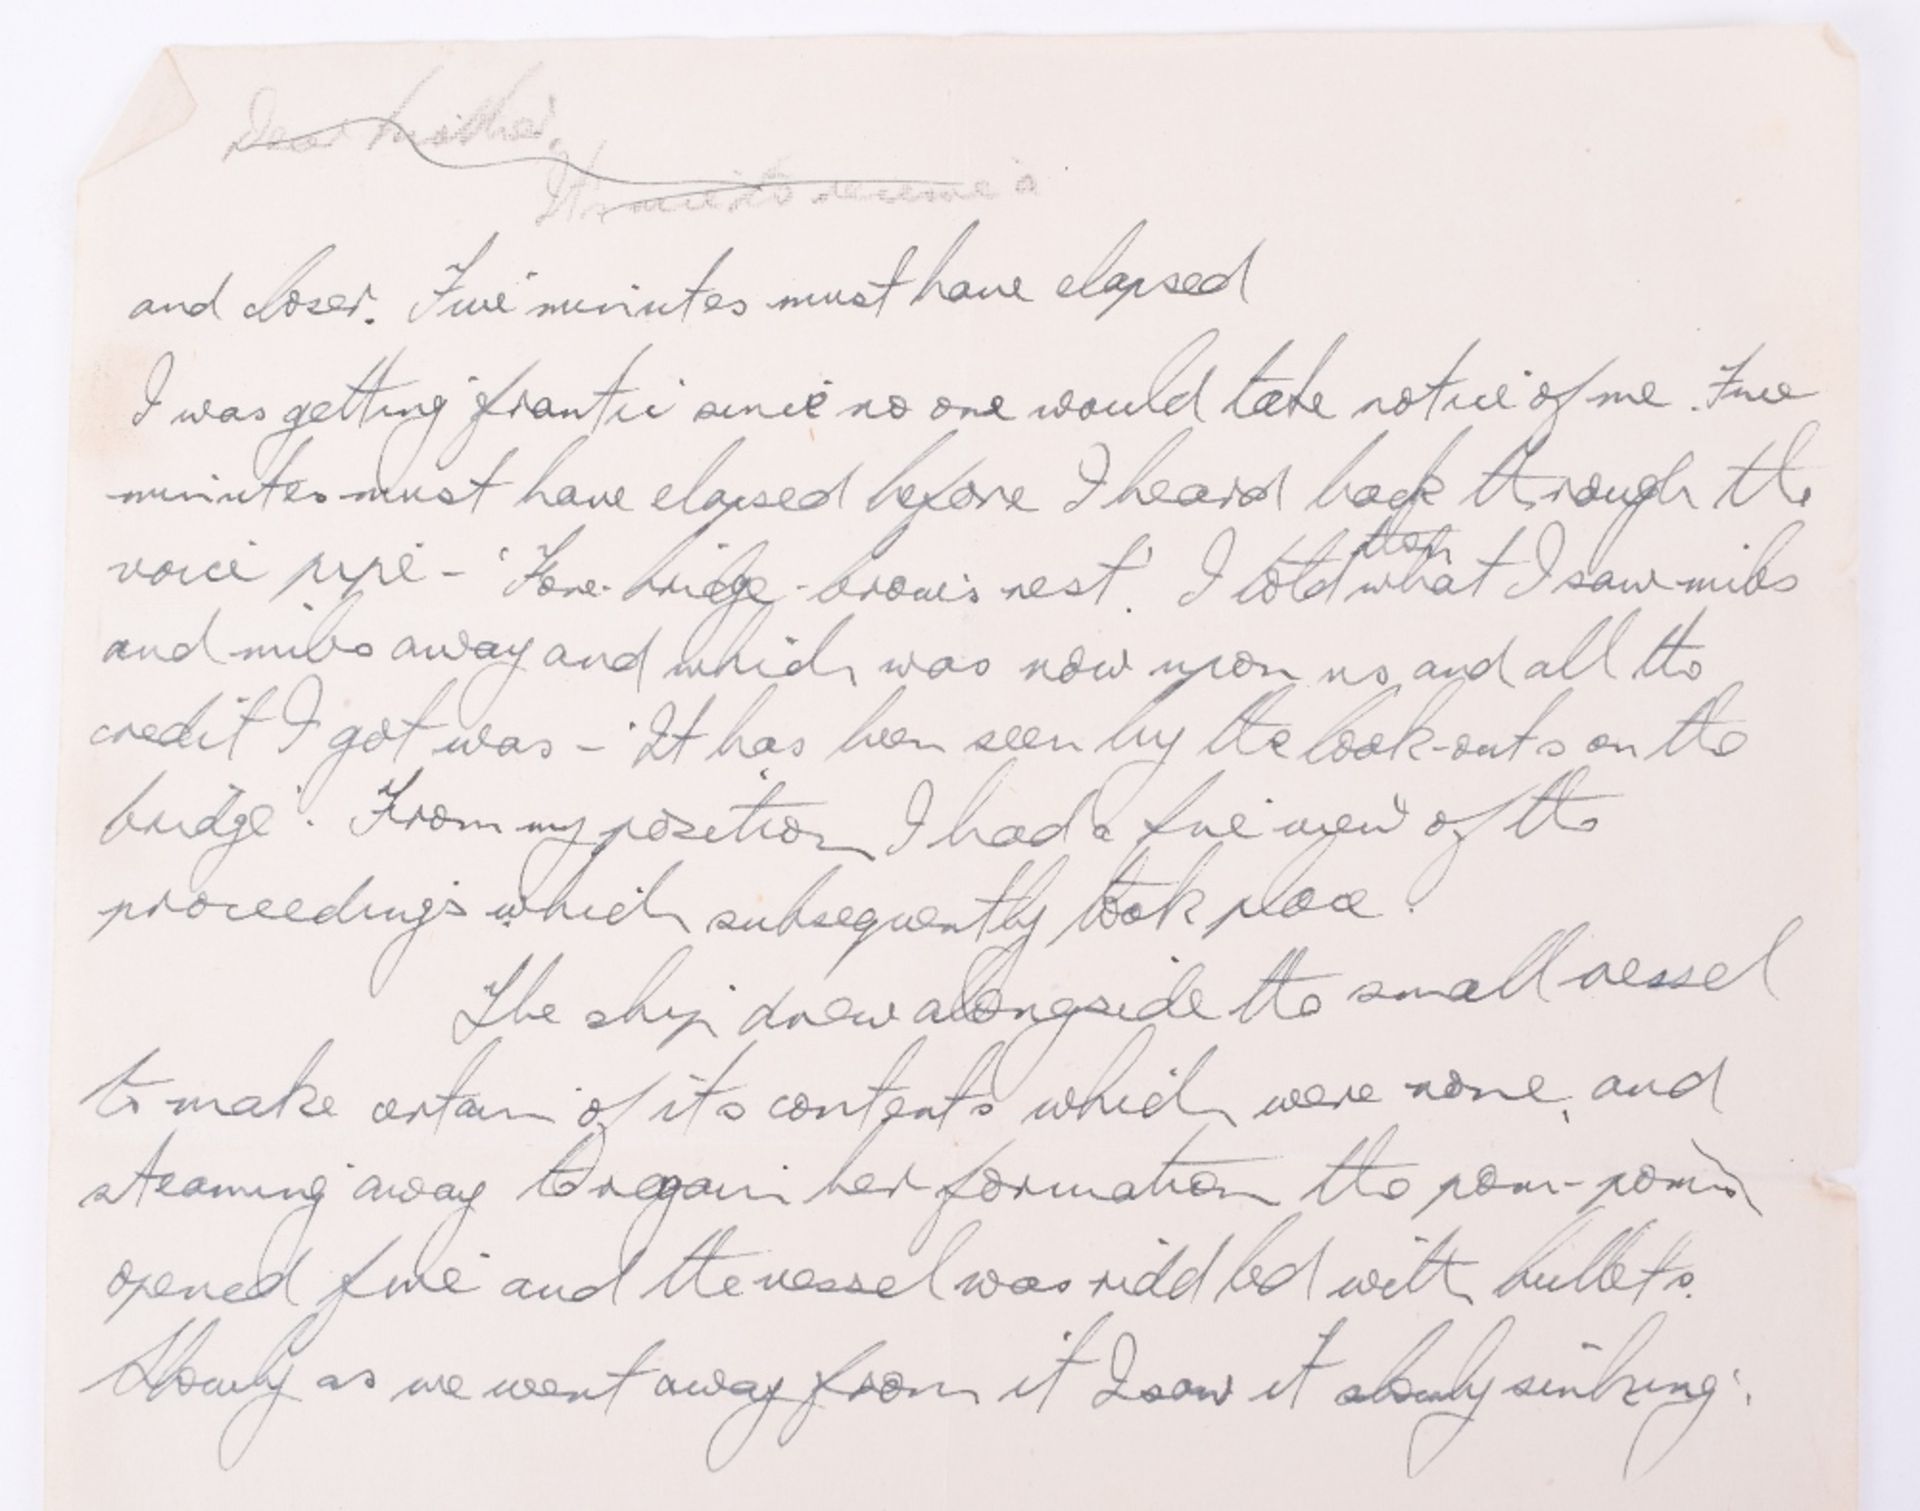 Dear Mother,
It's nice to receive a
and closer. Five minutes must have elapsed
I was getting frantic since no one would take notice of me. Five
minutes must have elapsed before I heard back through the
voice pipe - 'Fore-bridge - crow's nest'. I told them what I saw miles
and miles away and which was now upon us and all the
credit I got was - 'It has been seen by the look-outs on the
bridge'. From my position I had a fine view of the
proceedings which subsequently took place.
The ship drew alongside the small vessel
to make certain of its contents which were none, and
steaming away to regain her formation the pom-poms
opened fire and the vessel was riddled with bullets.
Slowly as we went away from it I saw it slowly sinking.